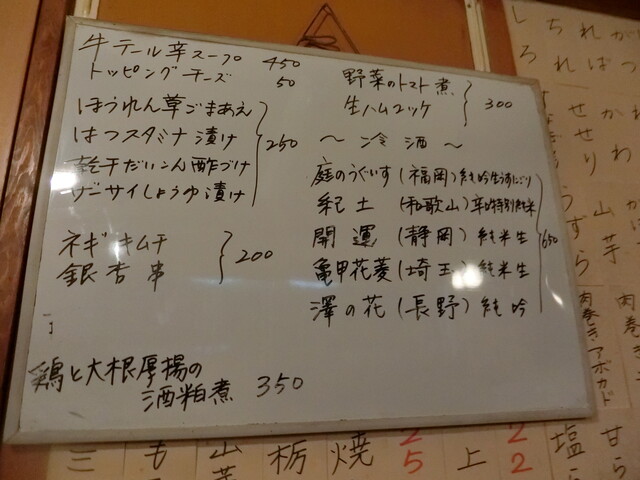 牛テール辛スープ 450
トッピングチーズ 50
ほうれん草ごまあえ
はつスタミナ漬け
乾干だいこん酢づけ
ザーサイしょうゆ漬け
250
ネギキムチ
銀杏串
200
鶏と大根厚揚の
酒粕煮 350
野菜のトマト煮
生ハムユッケ
300
〜冷酒〜
庭のうぐいす(福岡)純吟生うすにごり
紀土(和歌山)辛口特別純米
開運(静岡)純米生
亀甲花菱(埼玉)純米生
澤の花(長野)純吟
650
山芋
肉巻きアボカド
三
も
栃
焼
25
上
22
塩ら
甘ら